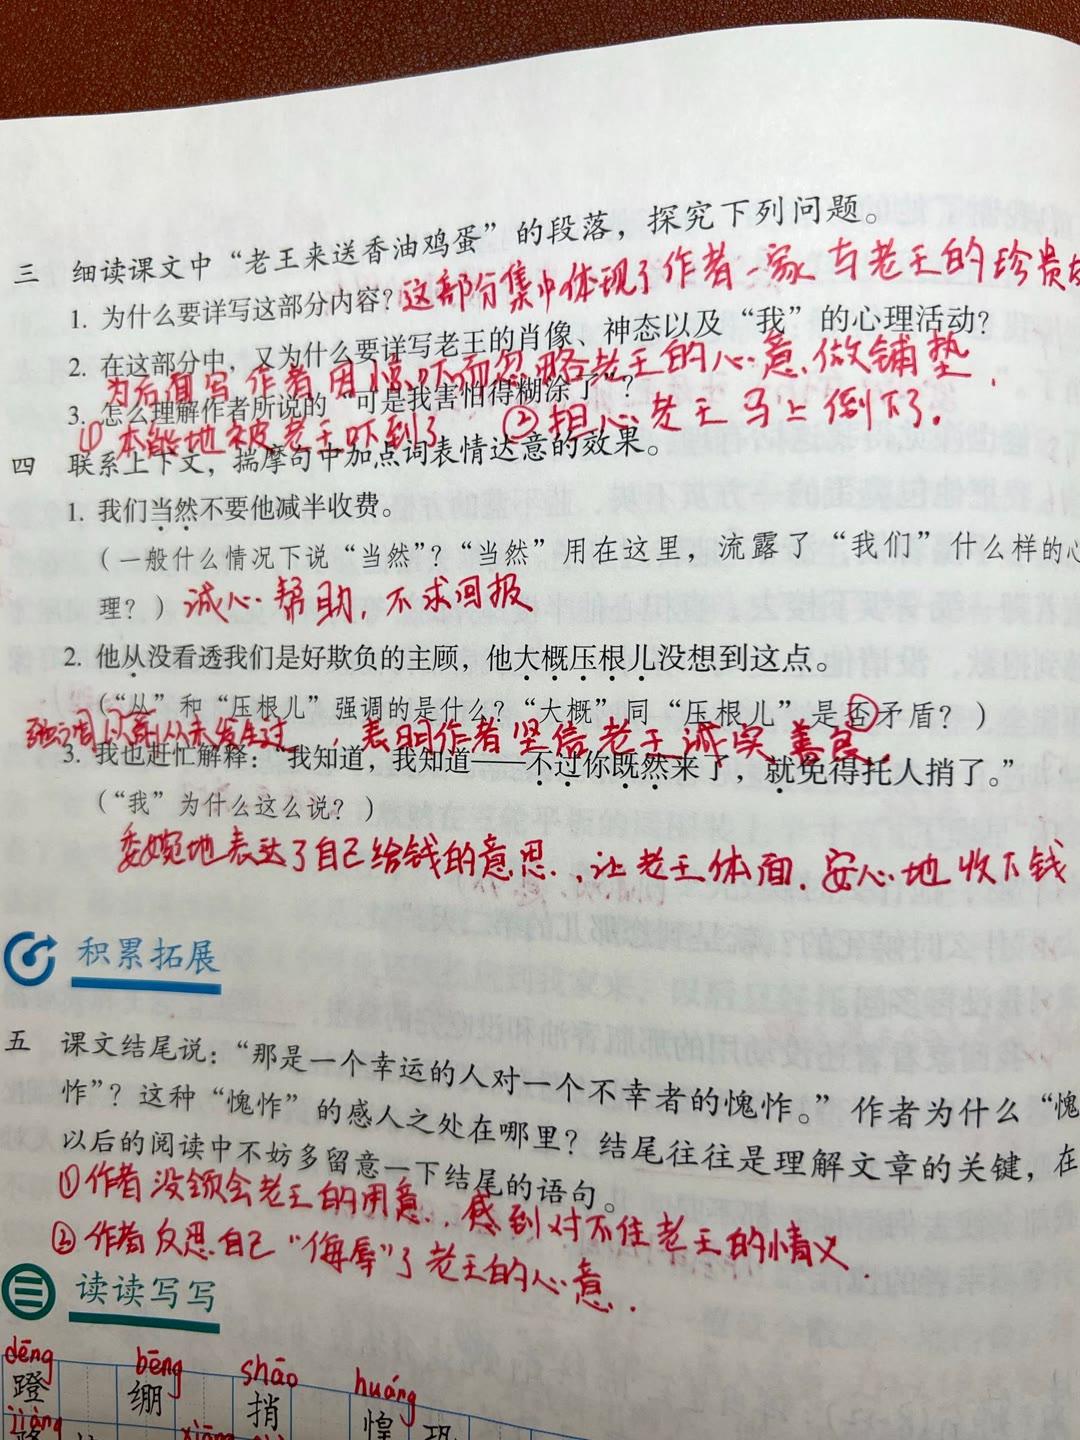 三 细读课文中“老王来送香油鸡蛋”的段落，探究下列问题。
1. 为什么要详写这部分内容？这部分集中体现了作者一家与老王的珍贵
2. 在这部分中，又为什么要详写老王的肖像、神态以及“我”的心理活动？
为后面写作者因惊吓而忽略老王的心意做铺垫.
3. 怎么理解作者所说的“可是我害怕得糊涂了”？
①本能地被老王吓到了 ②担心老王马上倒下了.
四 联系上下文，揣摩句中加点词表情达意的效果。
1. 我们当然不要他减半收费。
（一般什么情况下说“当然”？“当然”用在这里，流露了“我们”什么样的心
理？）诚心帮助，不求回报
2. 他从没看透我们是好欺负的主顾，他大概压根儿没想到这点。
（“从”和“压根儿”强调的是什么？“大概”同“压根儿”是否矛盾？）
强调以前从未发生过，表明作者坚信老王诚实善良.
3. 我也赶忙解释：“我知道，我知道——不过你既然来了，就免得托人捎了。”
（“我”为什么这么说？）
委婉地表达了自己给钱的意思.，让老王体面.安心地收下钱
积累拓展
五 课文结尾说：“那是一个幸运的人对一个不幸者的愧怍。”作者为什么“愧
怍”？这种“愧怍”的感人之处在哪里？结尾往往是理解文章的关键，在
以后的阅读中不妨多留意一下结尾的语句。
①作者没领会老王的用意.，感到对不住老王的情义.
②作者反思自己“侮辱”了老王的心意.
读读写写
dēng bēng shāo huáng
蹬 绷 捎 惶 恐
jiàng